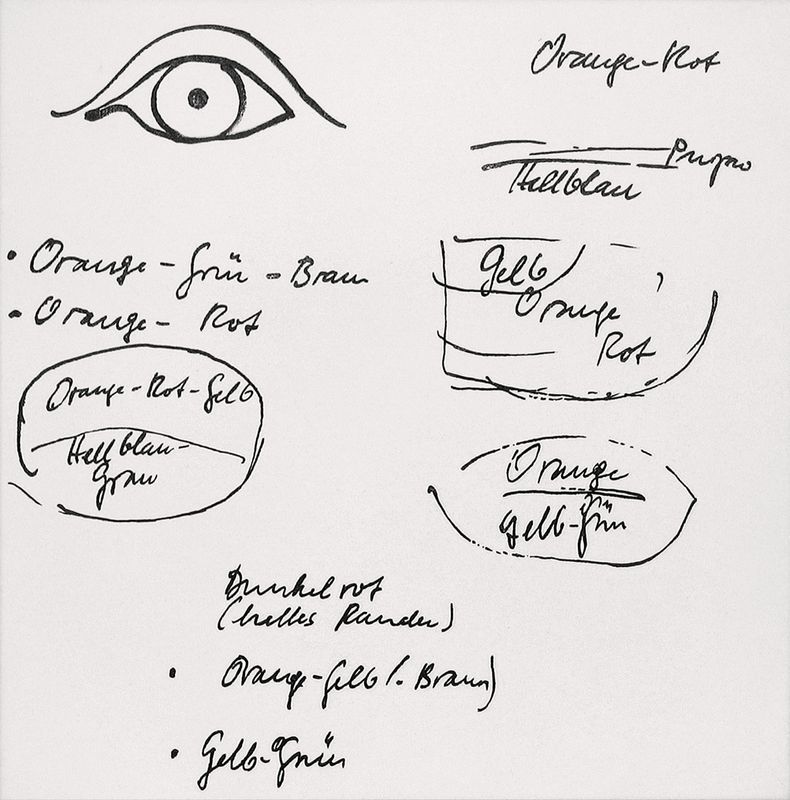 Orange-Rot
Hellblau
• Orange - Grün - Braun
• Orange - Rot
Gelb
Orange
Rot
Orange-Rot-Gelb
Hellblau-
Grau
Orange
Gelb-Grün
Dunkelrot
(helles Rander)
• Orange-Gelb (-Braun)
• Gelb-Grün